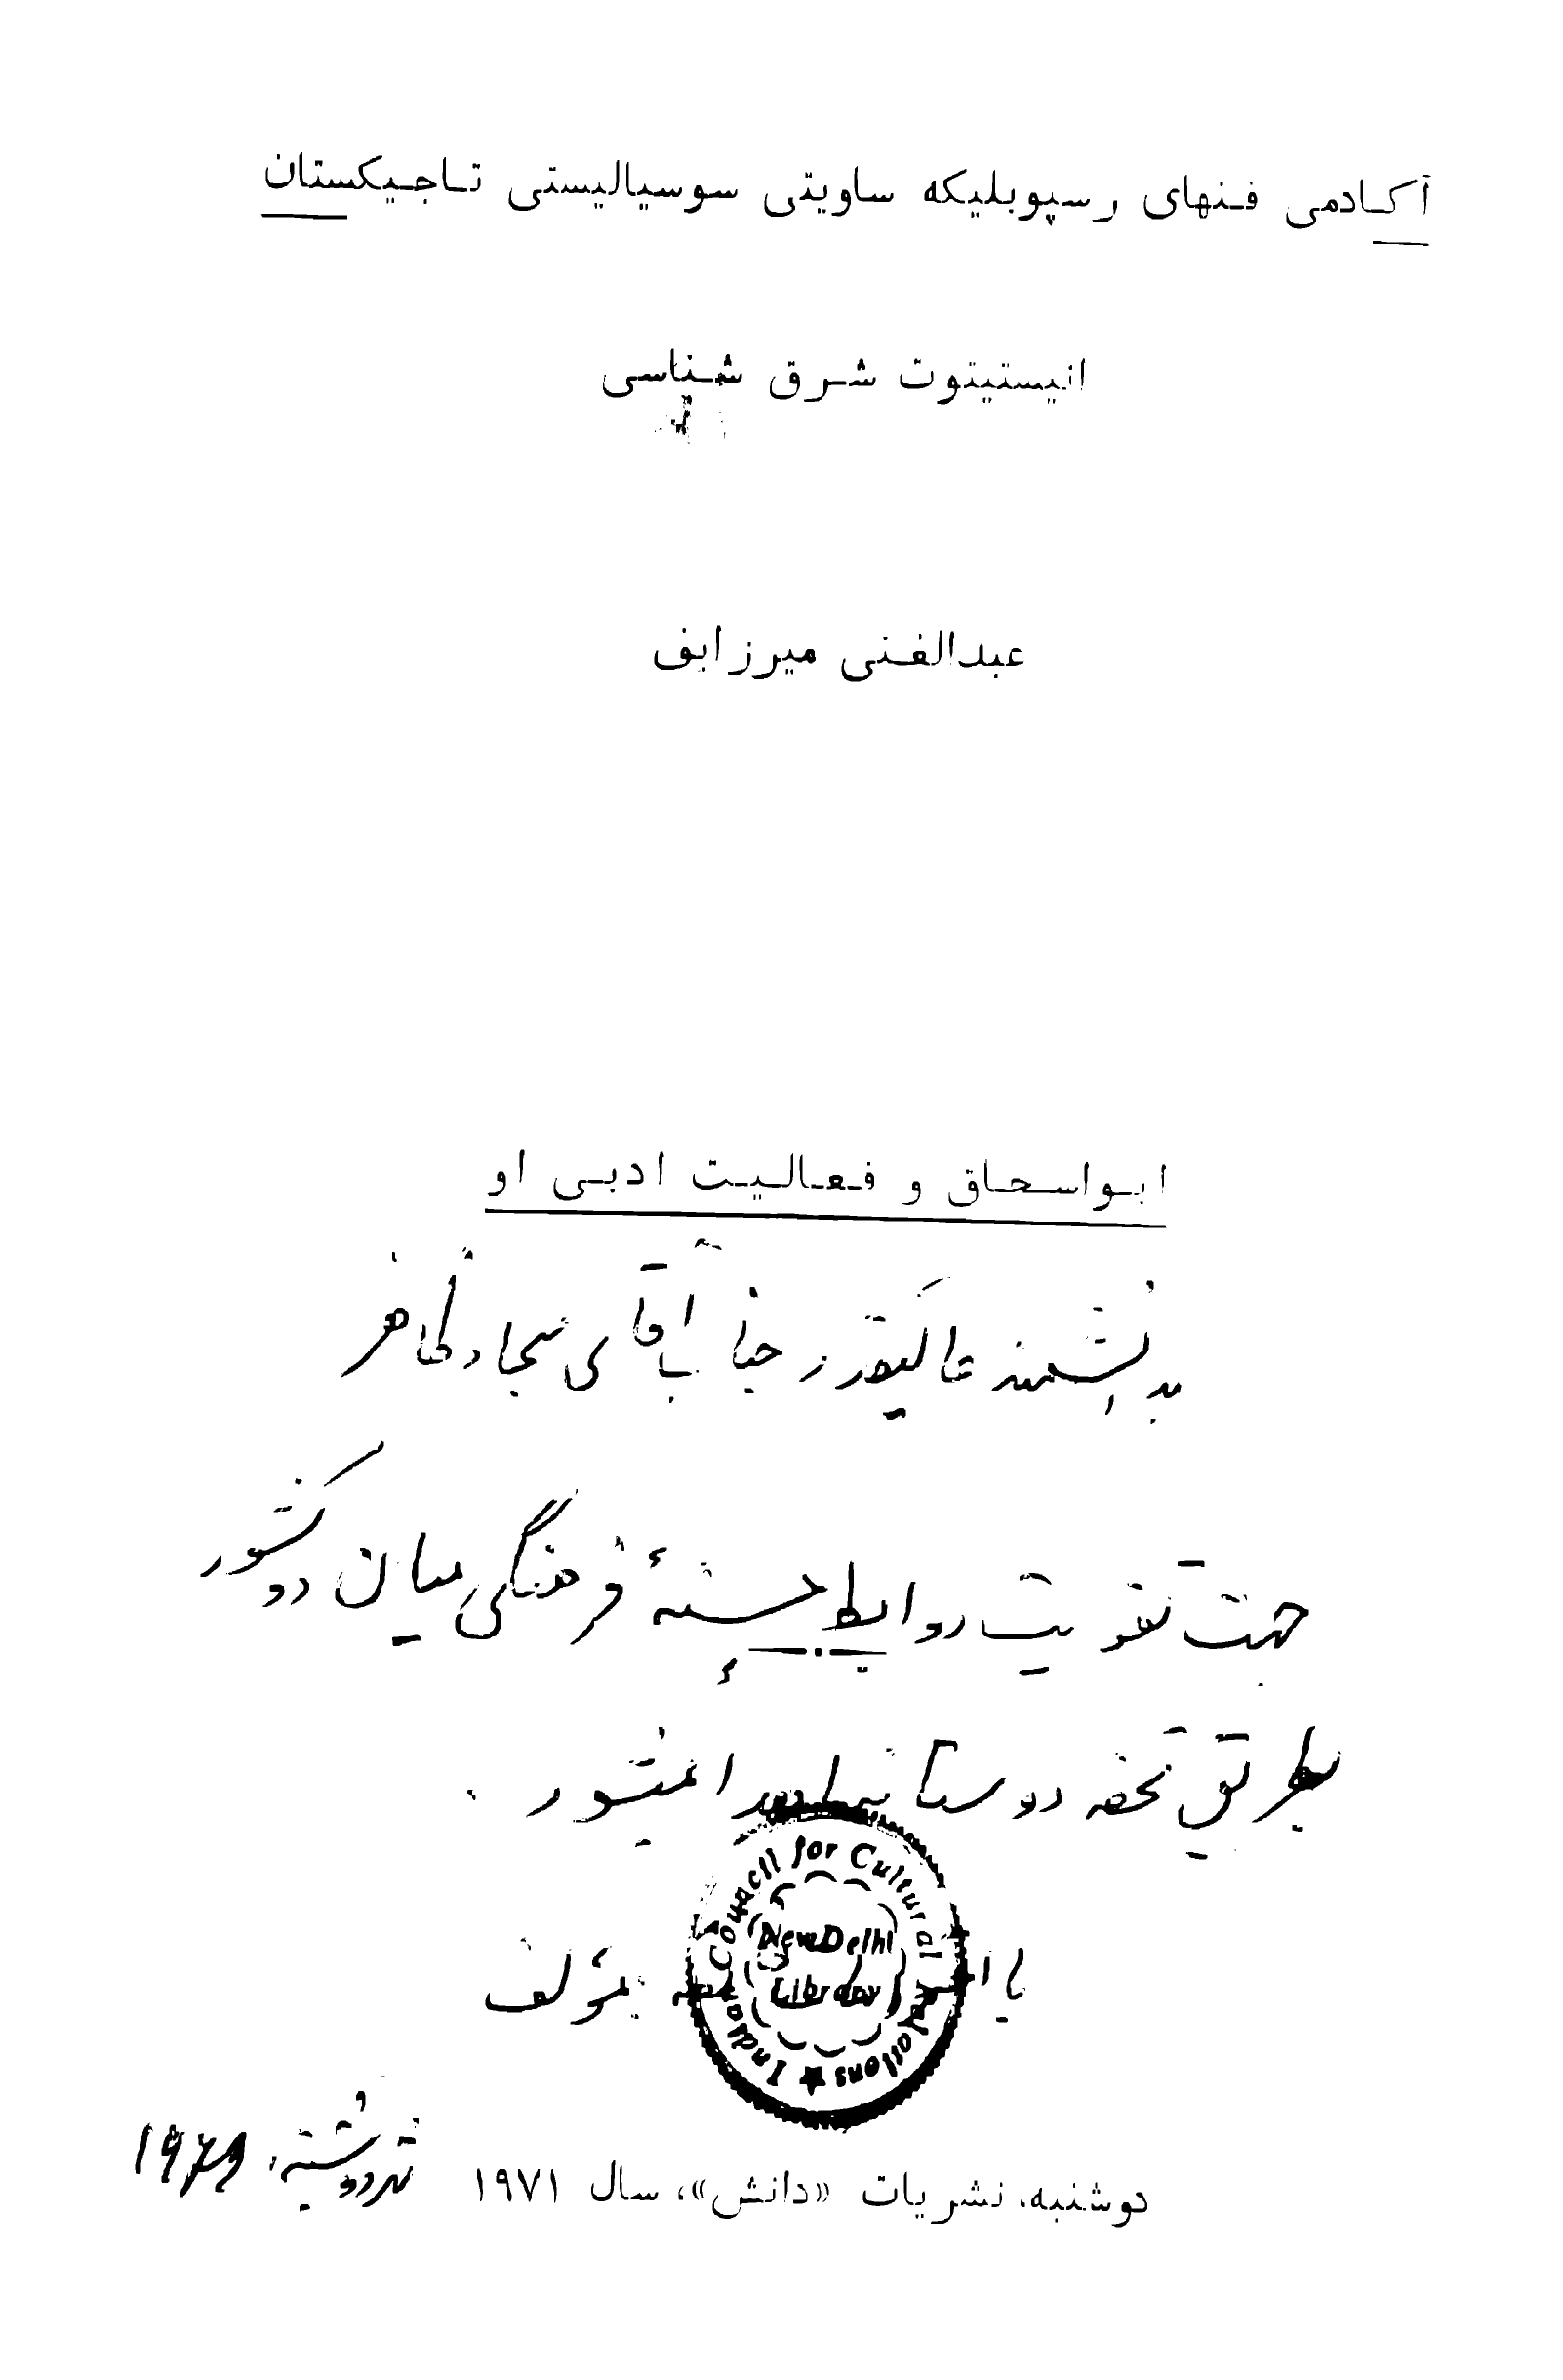 آکادمی فنهای رسپوبلیکه ساویتی سوسیالیستی تاجیکستان
انیستیتوت شرق شناسی
عبدالغنی میرزایف
ابواسحاق و فعالیت ادبی او
بدانشمند عالیقدر جناب آقای سجاد ظاهر
جهت تقویت روابط حسنهٔ فرهنگی میان دو کشور
بطریق تحفه دوستانه میشود.
با مؤلف
Indian Council for Cultural Relations
New Delhi
Library
دوشنبه، نشریات «دانش»، سال ۱۹۷۱
شهر دوشنبه،